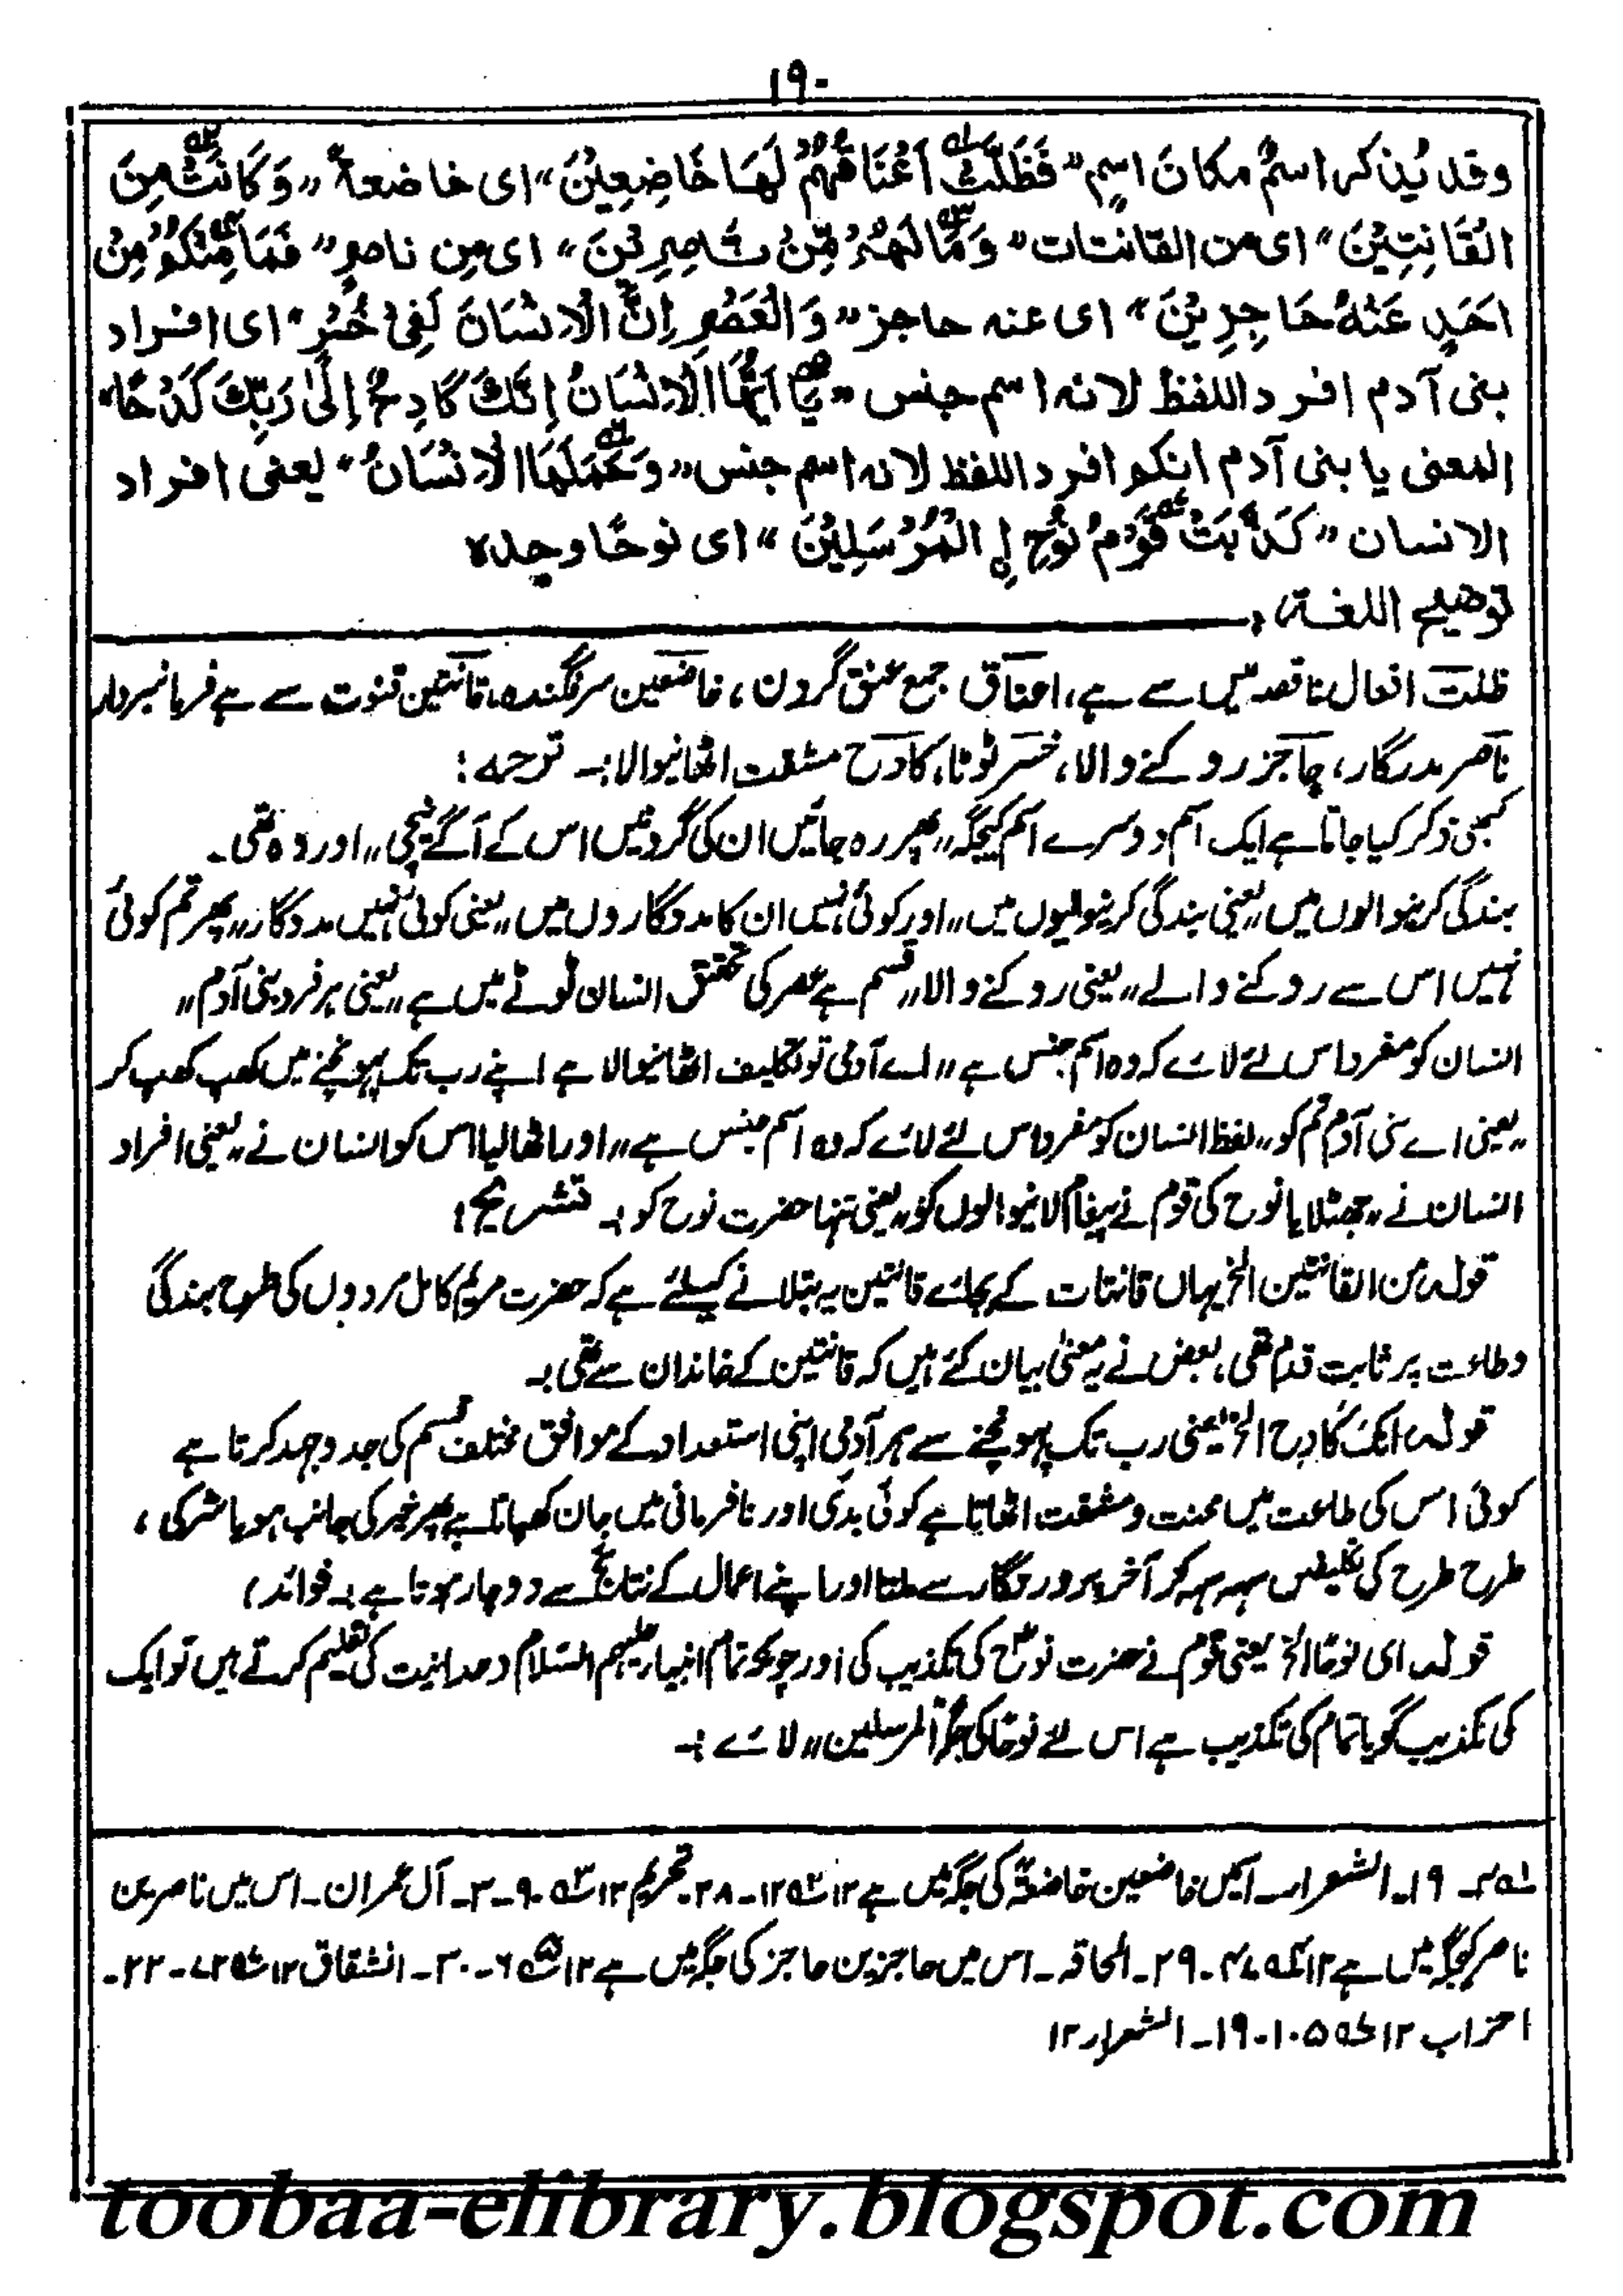 ١٩٠
وقد يُذكر اسمٌ مكانَ اسمٍ "فَظَلَّتْ اَعْنَاقُهُمْ لَهَا خَاضِعِيْنَ" ای خاضعةً "وَكَانَتْ مِنَ
الْقَانِتِيْنَ" ای من القانتات "وَمَا لَهُمْ مِّنْ نَّاصِرِيْنَ" ای مِن ناصرٍ "فَمَا مِنْكُمْ مِنْ
اَحَدٍ عَنْهُ حَاجِزِيْنَ" ای عنه حاجز "وَالْعَصْرِ اِنَّ الْاِنْسَانَ لَفِیْ خُسْرٍ" ای افراد
بنی آدم افرد اللفظ لانه اسم جنس "يٰا اَيُّهَا الْاِنْسَانُ اِنَّكَ كَادِحٌ اِلٰى رَبِّكَ كَدْحًا"
المعنی یا بنی آدم انکم افرد اللفظ لانه اسم جنس "وَحَمَلَهَا الْاِنْسَانُ" یعنی افراد
الانسان "كَذَّبَتْ قَوْمُ نُوْحِ ۣالْمُرْسَلِيْنَ" ای نوحًا وحده
توضیح اللغة:
ظلت افعال ناقصہ میں سے ہے، اعناق جمع عنق گردن، خاضعین سرفگندہ، قانتین قنوت سے ہے فرمانبردار
ناصر مددگار، حاجز روکنے والا، خسر ٹوٹا، کادح مشقت اٹھانیوالا:۔ ترجمہ:
کبھی ذکر کیا جاتا ہے ایک اسم دوسرے اسم کیجگہ "پھر رہ جائیں ان کی گردنیں اس کے آگے نیچی" اور وہ تھی۔
بندگی کرنیوالوں میں" یعنی بندگی کرنیوالیوں میں "اور کوئی نہیں ان کا مددگاروں میں" یعنی کوئی نہیں مددگار "پھر تم کوئی
نہیں اس سے روکنے والے" یعنی روکنے والا "قسم ہے عصر کی تحقیق انسان ٹوٹے میں ہے" یعنی ہر فرد بنی آدم"
انسان کو مفرد اس لئے لائے کہ وہ اسم جنس ہے "اے آدمی تو تکلیف اٹھانیوالا ہے اپنے رب تک پہونچنے میں کھپ کھپ کر
"یعنی اے بنی آدم تم کو" لفظ انسان کو مفرد اس لئے لائے کہ وہ اسم جنس ہے "اور اٹھالیا اس کو انسان نے" یعنی افراد
انسان نے "جھٹلایا نوح کی قوم نے پیغام لانیوالوں کو" یعنی تنہا حضرت نوح کو:۔ تشریح:
قولہ من القانتین الخ یہاں قانتات کے بجائے قانتین یہ بتلانے کیلئے ہے کہ حضرت مریم کامل مردوں کی طرح بندگی
وطاعت پر ثابت قدم تھی، بعض نے یہ معنیٰ بیان کئے ہیں کہ قانتین کے خاندان سے تھی:۔
قولہ انک کادح الخ یعنی رب تک پہونچنے سے ہر آدمی اپنی استعداد کے موافق مختلف قسم کی جدوجہد کرتا ہے
کوئی اس کی طاعت میں محنت ومشقت اٹھاتا ہے کوئی بدی اور نافرمانی میں جان کھپاتا ہے پھر خیر کی جانب ہو یا شر کی،
طرح طرح کی تکلیفیں سہہ سہہ کر آخر پروردگار سے ملتا اور اپنے اعمال کے نتائج سے دوچار ہوتا ہے:۔ فوائد)
قولہ ای نوحًا الخ یعنی قوم نے حضرت نوح کی تکذیب کی اور چونکہ تمام انبیاء علیہم السلام وحدانیت کی تعلیم کرتے ہیں تو ایک
کی تکذیب گویا تمام کی تکذیب ہے اس لئے نوحًا کی جگہ المرسلین" لائے:۔
۱۹۔ الشعراء۔ اسمیں خاضعین خاضعۃ کی جگہ میں ہے ۱۲ ۱۲۔ ۲۸۔ تحریم ۱۲ ۹۰۔ ۳۔ آل عمران۔ اس میں ناصرین
ناصر کی جگہ میں ہے ۱۲ ۴۷۔ ۲۹۔ الحاقہ۔ اس میں حاجزین حاجز کی جگہ میں ہے ۱۲ ۶۔ ۳۰۔ انشقاق ۱۲ ۷۲۔ ۲۲۔
احزاب ۱۲ ۱۰۵۔ ۱۹۔ الشعراء ۱۲
toobaa-elibrary.blogspot.com